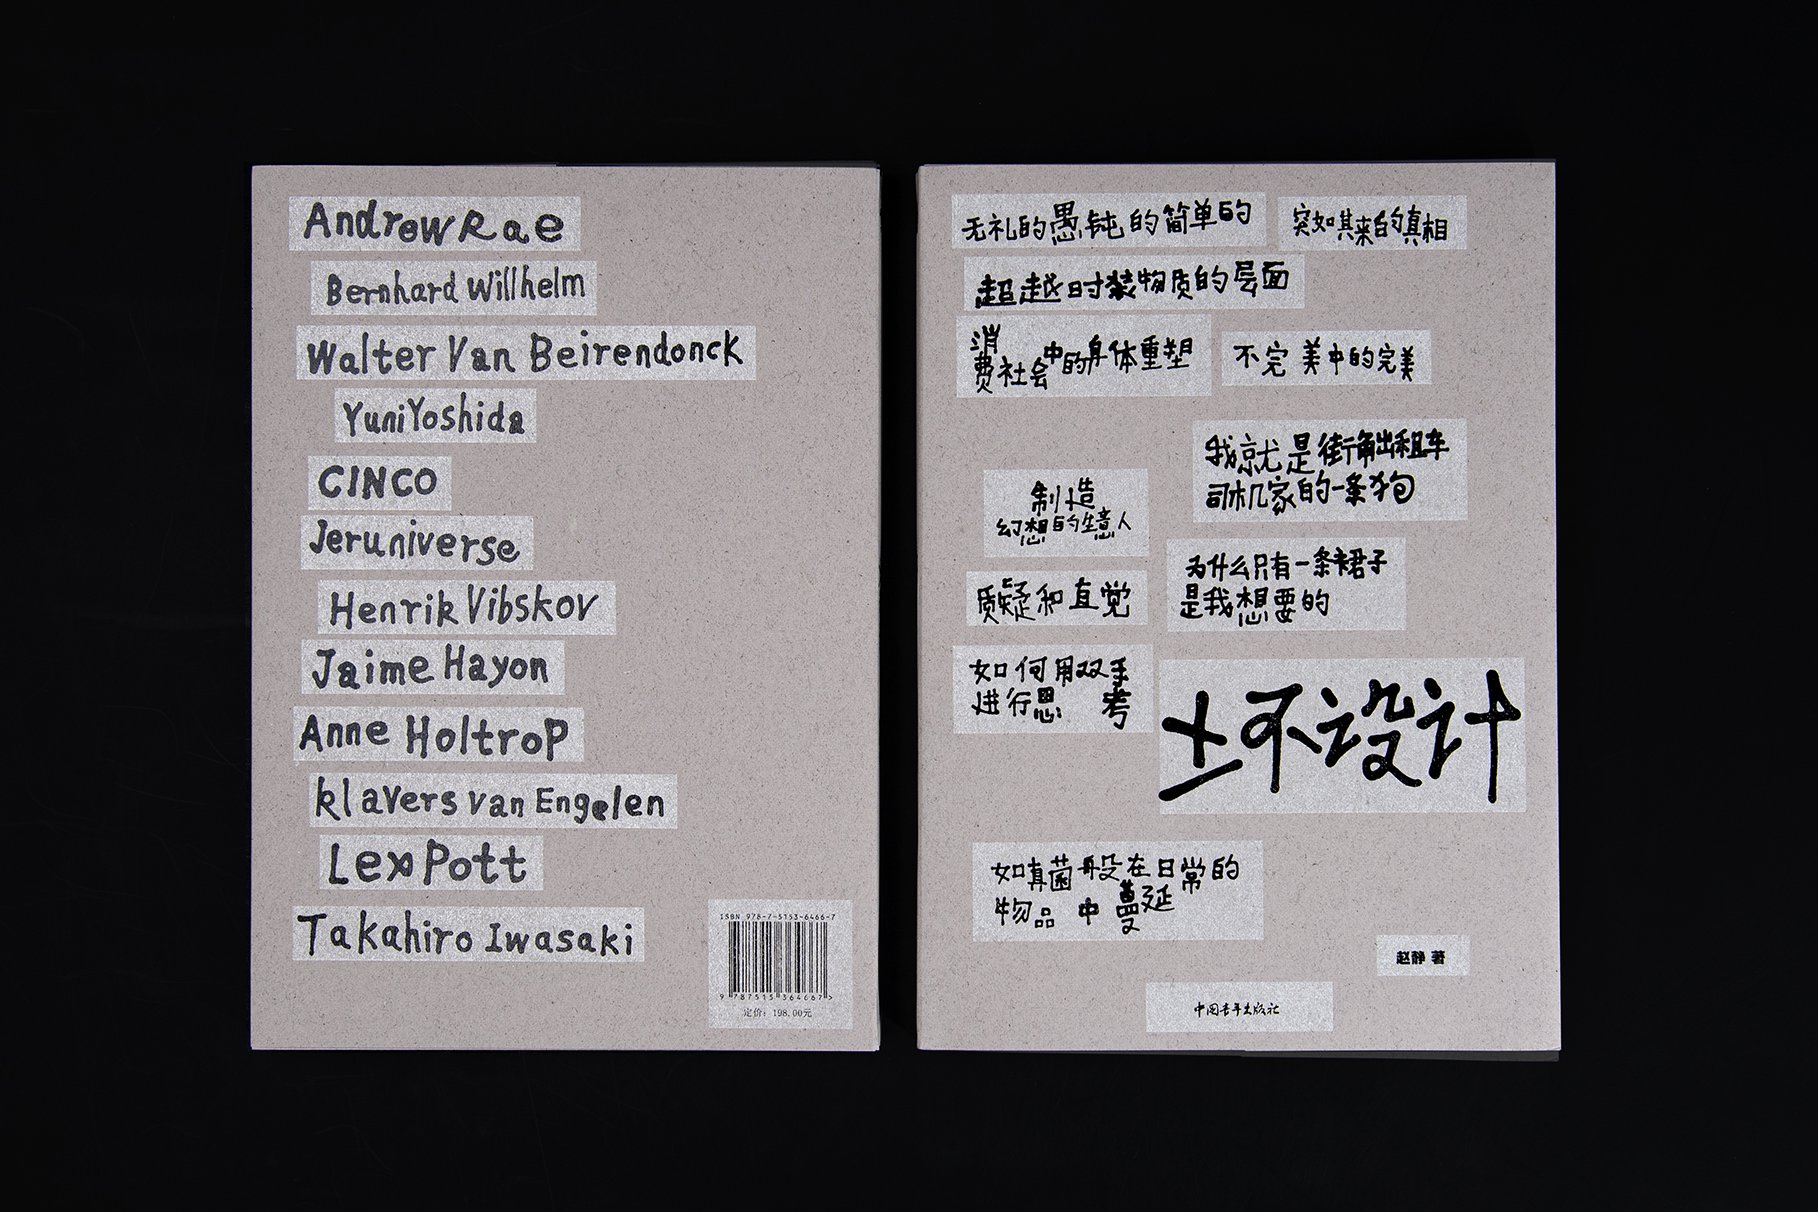 AndrewRae
Bernhard Willhelm
Walter Van Beirendonck
YuniYoshida
CINCO
Jeruniverse
Henrik Vibskov
Jaime Hayon
Anne Holtrop
klavers van Engelen
Lex Pott
Takahiro Iwasaki
ISBN 978-7-5153-6466-7
9 787515 364667 >
定价：198.00元
无礼的愚钝的简单的
突如其来的真相
超越时装物质的层面
消
费社会中的身体重塑
不完美中的完美
我就是街角出租车
司机家的一条狗
制造
幻想的生意人
为什么只有一条裙子
是我想要的
质疑和直觉
如何用双手
进行思考
±不设计
如真菌般在日常的
物品中蔓延
赵静 著
中国青年出版社